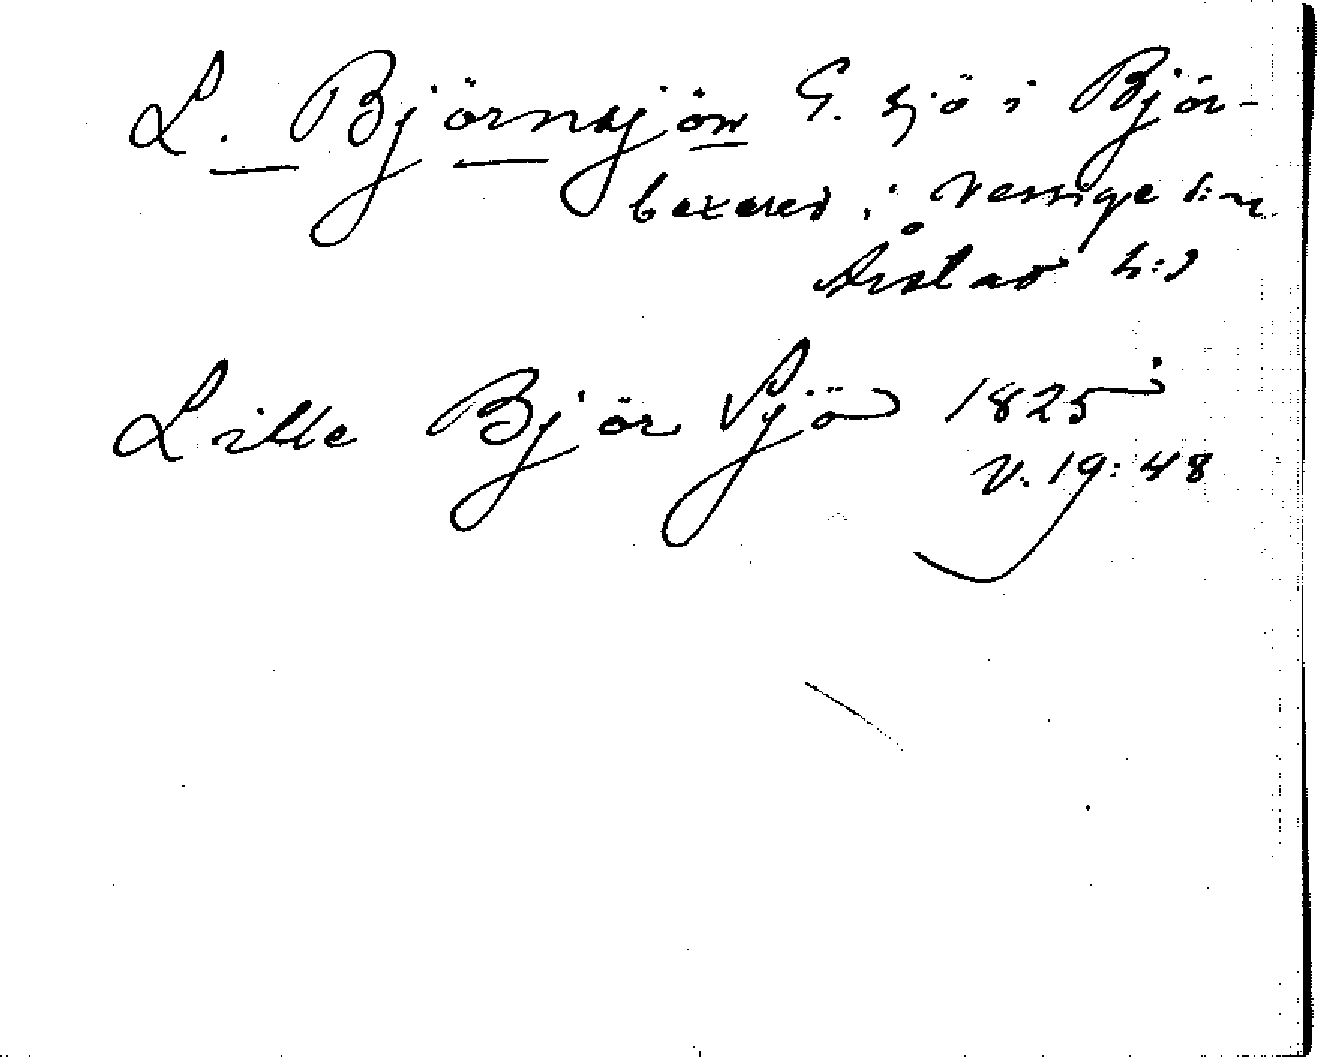 L. Björnsjön G. sjö i Björ-
bexered i Vessige s:n
Årstad h:d
Lille Björ Sjö 1825
V. 19:48